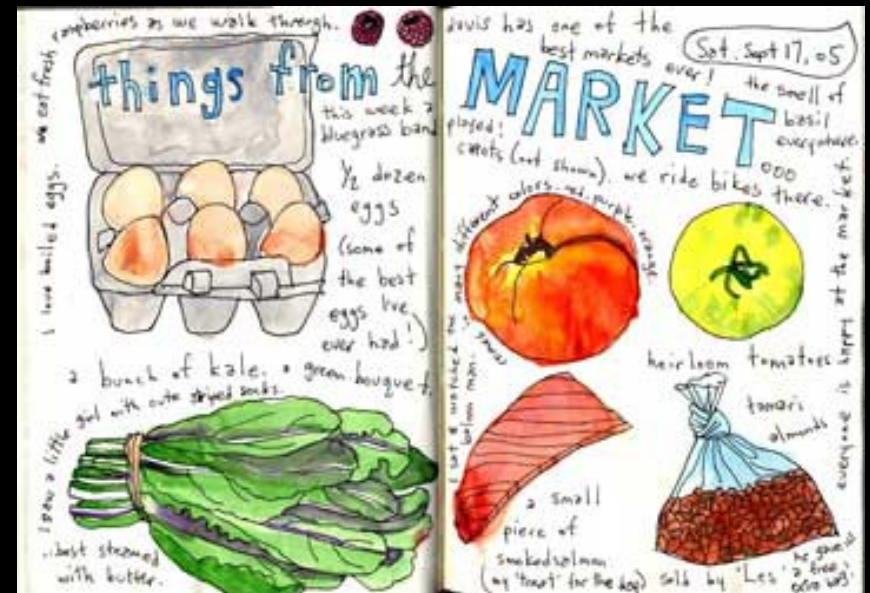 we eat fresh raspberries as we walk through.
things from the
this week a
bluegrass band
played!
1/2 dozen
eggs
(some of
the best
eggs I've
ever had!)
I love boiled eggs.
a bunch of kale. a green bouquet.
I saw a little girl with cute striped socks.
..best steamed
with butter.
davis has one of the
best markets
ever!
Sat. Sept 17, 05
MARKET
the smell of
basil
everywhere.
carrots (not shown). we ride bikes there.
many different colors. red, purple, orange.
I sat & watched the
balloon man.
heirloom tomatoes
tamari
almonds
everyone is happy at the market.
a small
piece of
smoked salmon
(my 'treat' for the day)
sold by 'Les'
he gave us
a free
extra bag!